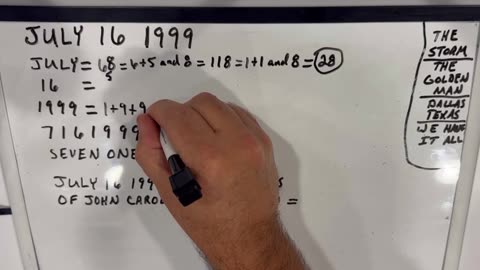 JULY 16 1999
JULY = 68 = 6+5 and 8 = 118 = 1+1 and 8 = 28
5
16 =
1999 = 1+9+9
7161999
SEVEN ONE
JULY 16 19
OF JOHN CARO =
THE
STORM
THE
GOLDEN
MAN
DALLAS
TEXAS
WE HAVE
IT ALL